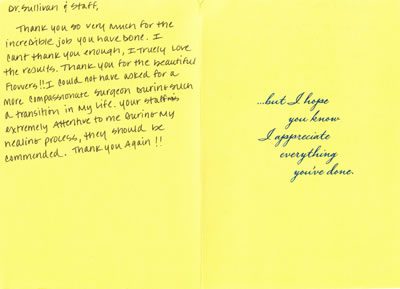 Dr. Sullivan & Staff,
Thank you so very much for the
incredible job you have done. I
can't thank you enough, I truely love
the results. Thank you for the beautiful
flowers!! I could not have asked for a
more compassionate surgeon during such
a transition in my life. Your staff is
extremely attentive to me during my
healing process, they should be
commended. Thank you again!!
...but I hope
you know
I appreciate
everything
you've done.